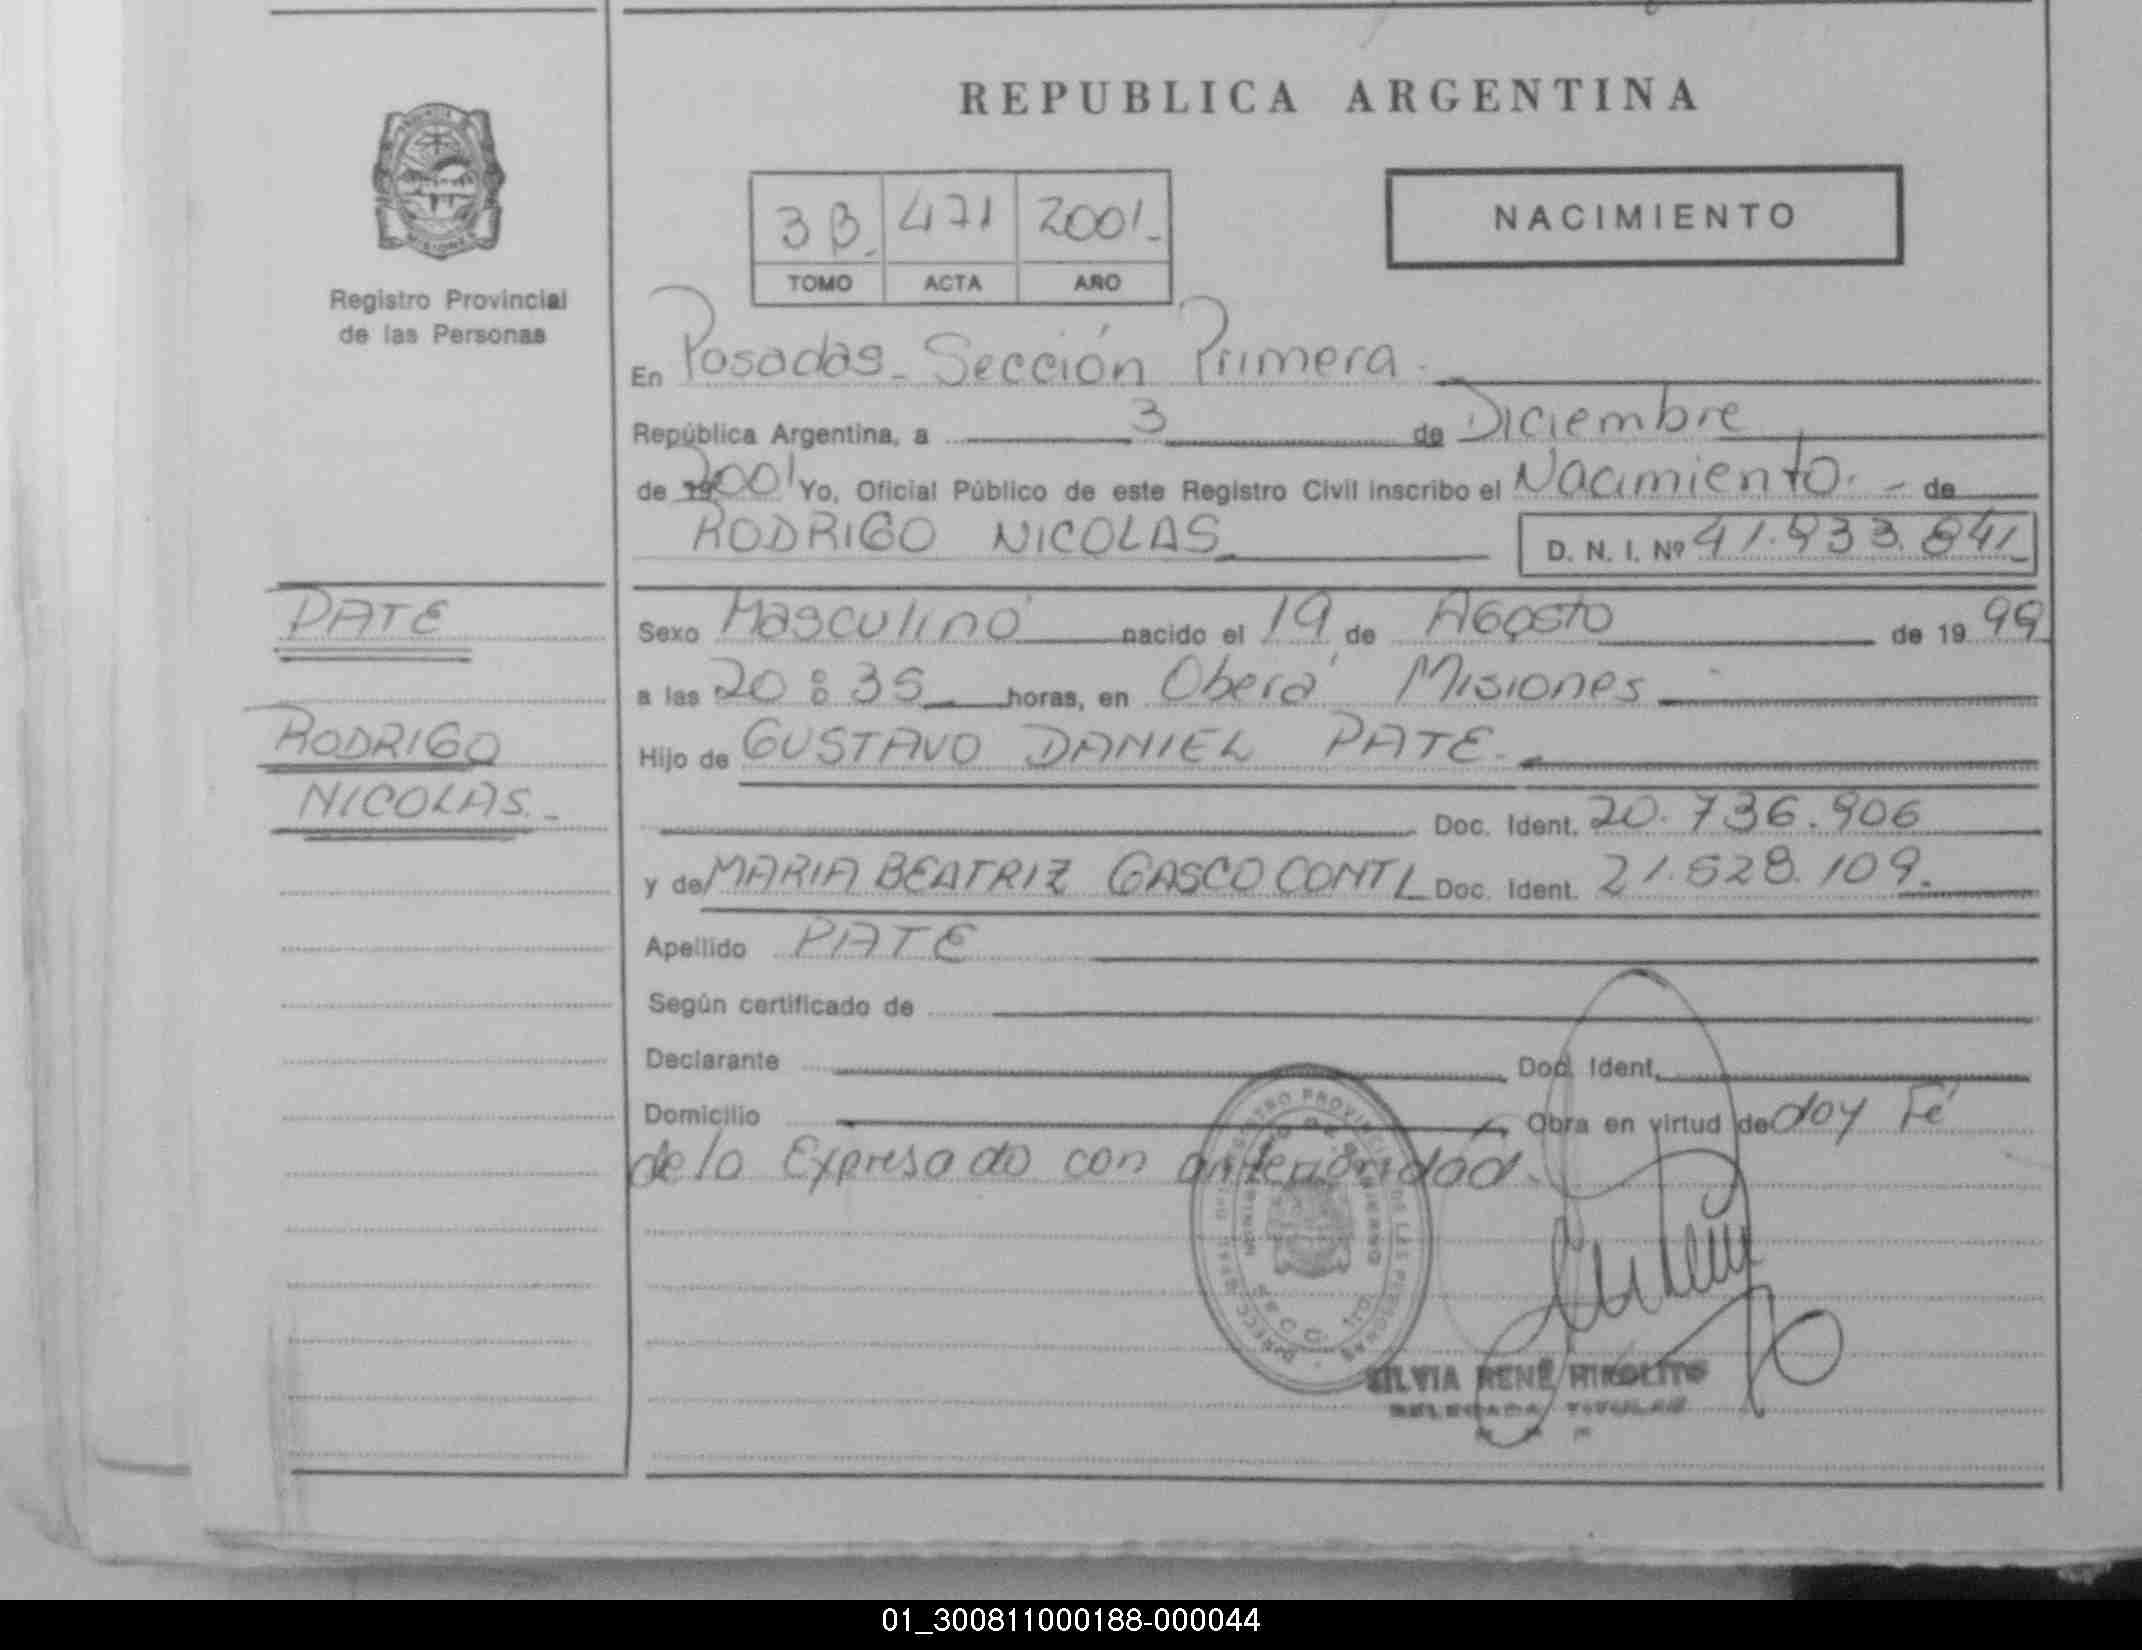 REPUBLICA ARGENTINA
NACIMIENTO
3 B. 471 2001.
TOMO ACTA AÑO
Registro Provincial
de las Personas
En Posadas. Sección Primera.
República Argentina, a 3 de Diciembre
de 2001 Yo, Oficial Público de este Registro Civil inscribo el Nacimiento. de
RODRIGO NICOLAS D. N. I. Nº
PATE
Sexo Masculino nacido el 19 de Agosto de 19 99
a las 20:35 horas, en Oberá Misiones
RODRIGO
Hijo de GUSTAVO DANIEL PATE.
NICOLAS.
Doc. Ident. 20.736.906
y de MARIA BEATRIZ GASCO CONTI Doc. Ident. 21.528.109.
Apellido PATE
Según certificado de
Declarante Doc. Ident.
Domicilio Obra en virtud de doy Fé
de lo Expresado con anterioridad.
SILVIA RENÉ
DELEGADA TITULAR
01_300811000188-000044